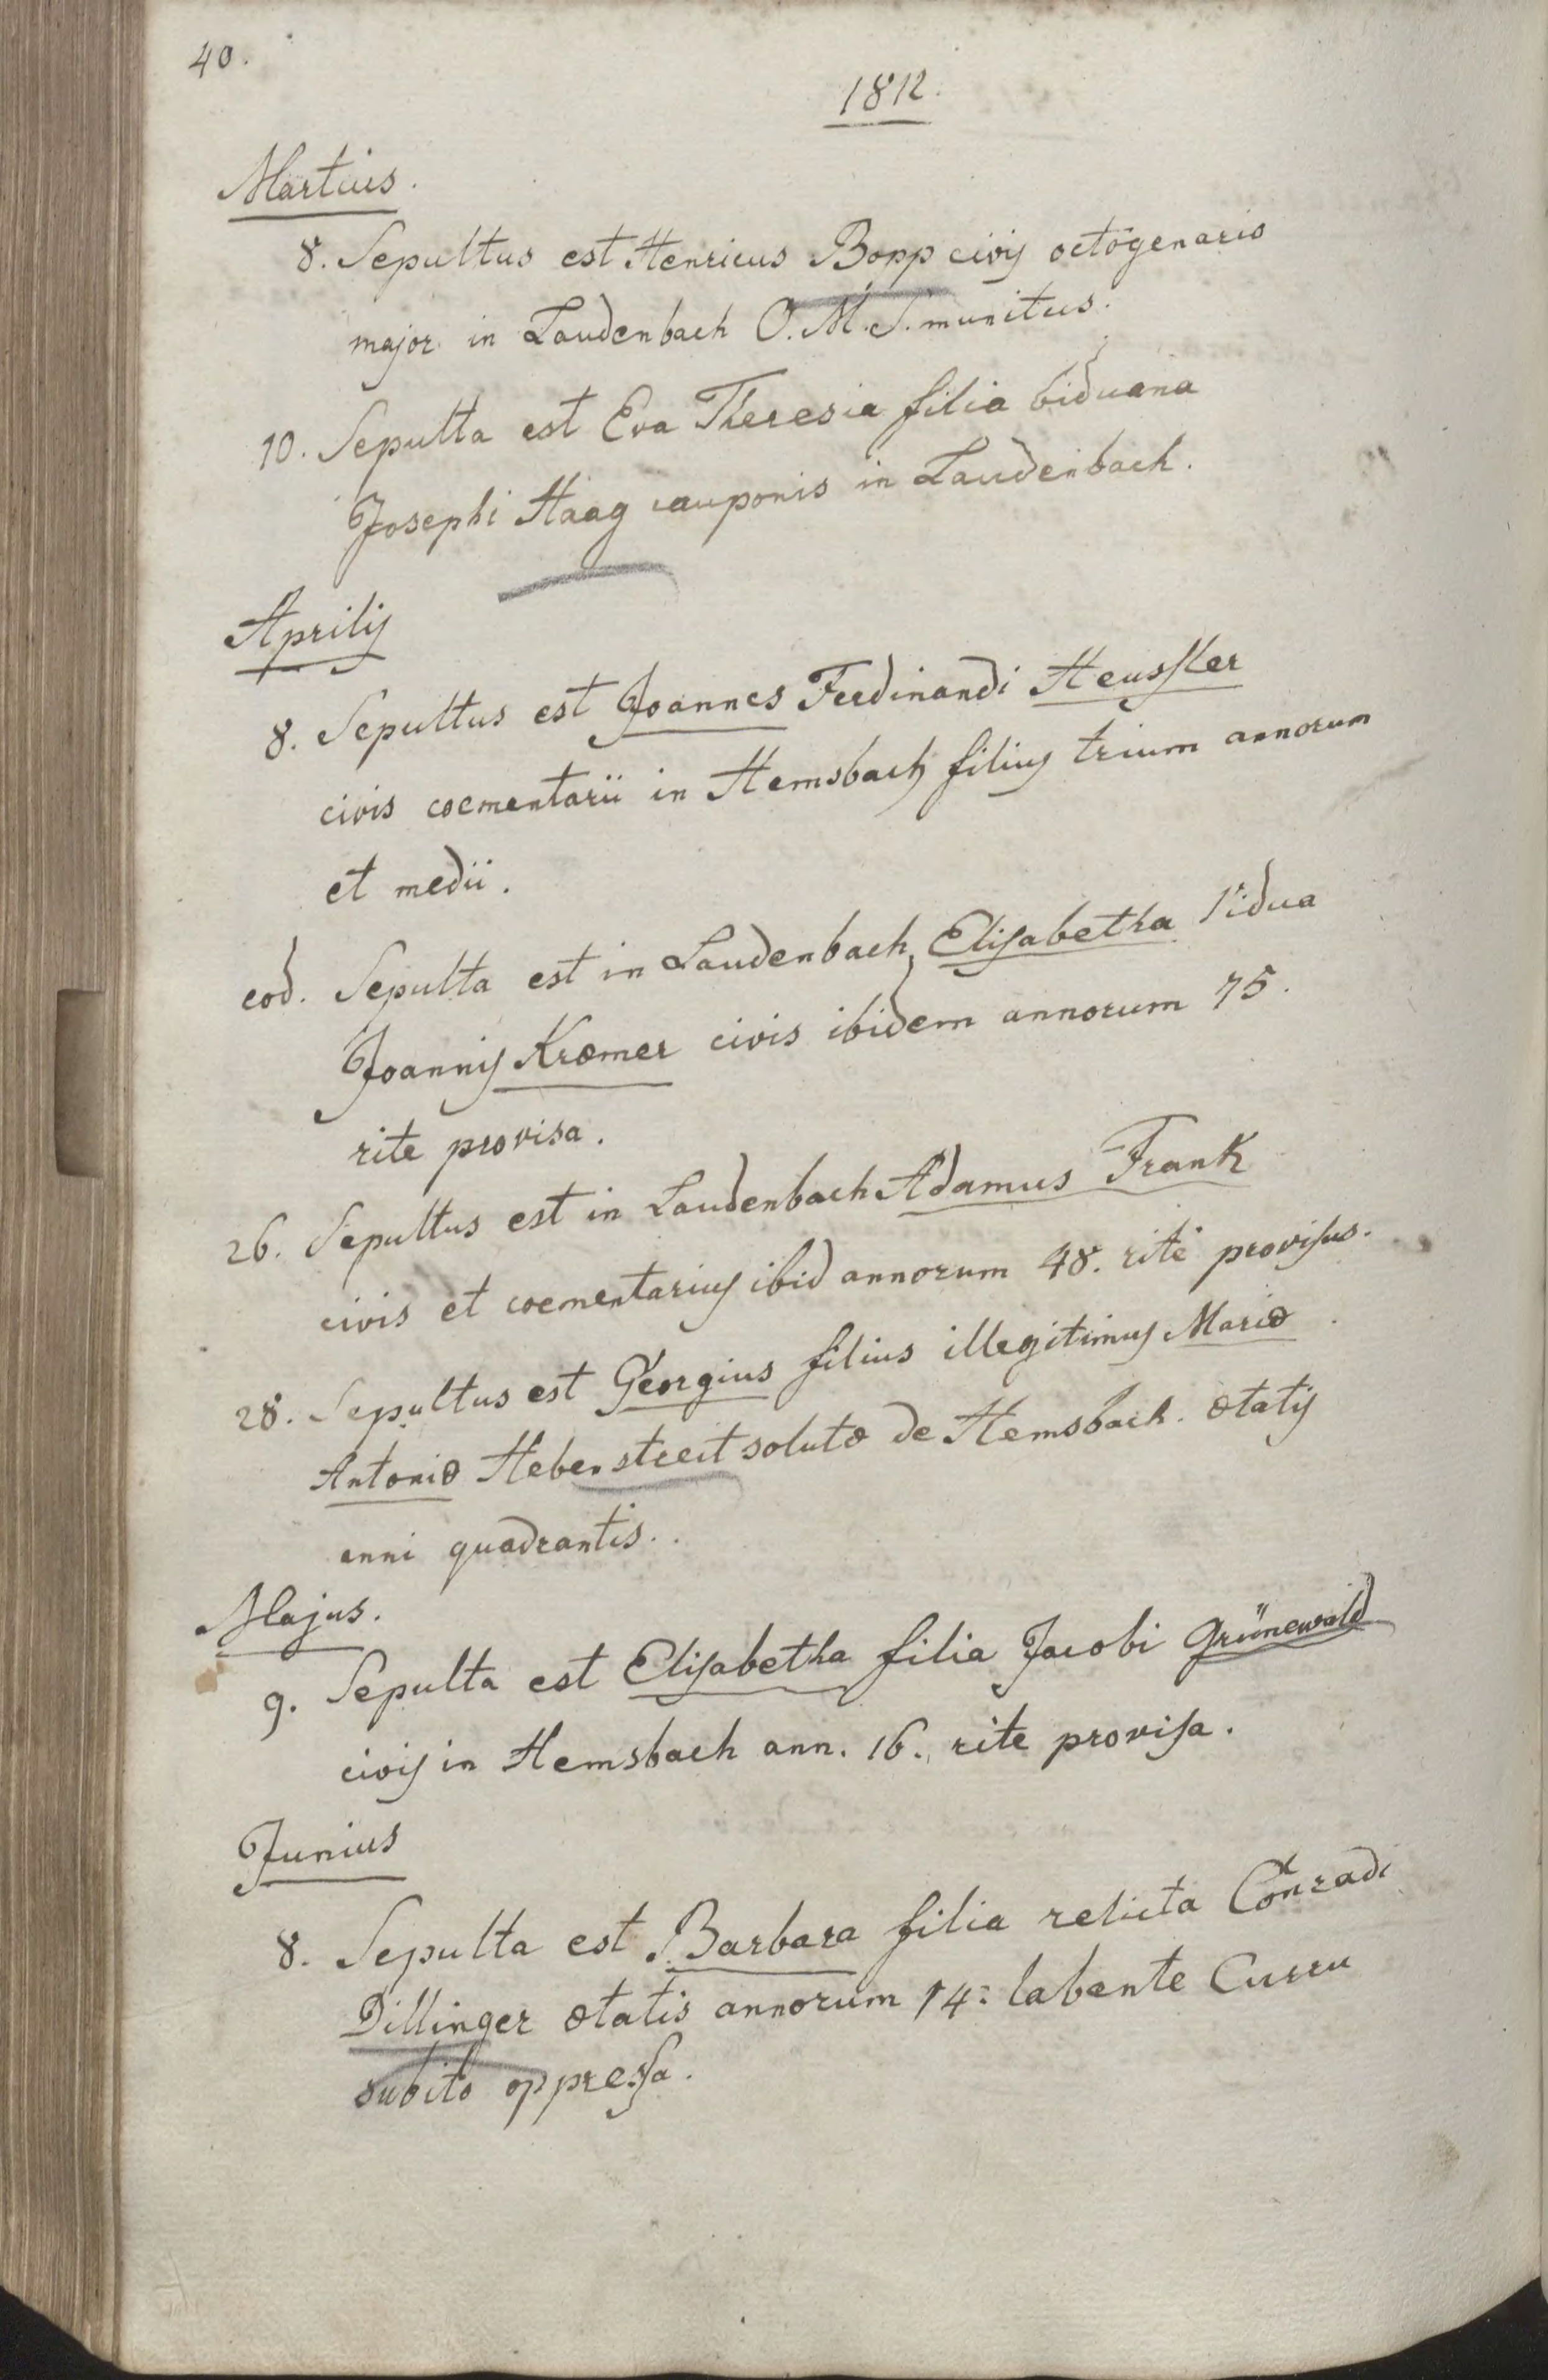 40.
1812.
Martius.
8. Sepultus est Henricus Bopp civis octogenario
major in Laudenbach O. M. S. munitus.
10. Sepulta est Eva Theresia filia biduana
Josephi Haag cauponis in Laudenbach.
Aprilis
8. Sepultus est Joannes Ferdinandi Heussler
civis coementarii in Hemsbach filius trium annorum
et medii.
eod. Sepulta est in Laudenbach Elisabetha Vidua
Joannis Kræmer civis ibidem annorum 75.
rite provisa.
26. Sepultus est in Laudenbach Adamus Frank
civis et coementarius ibid annorum 48. rite provisus.
28. Sepultus est Georgius filius illegitimus Mariæ
Antoniæ Hebenstreit solutæ de Hemsbach. ætatis
anni quadrantis.
Majus.
9. Sepulta est Elisabetha filia Jacobi Grünewald
civis in Hemsbach ann. 16. rite provisa.
Junius
8. Sepulta est Barbara filia relicta Conradi
Dillinger ætatis annorum 14. labente Curru
subito oppressa.